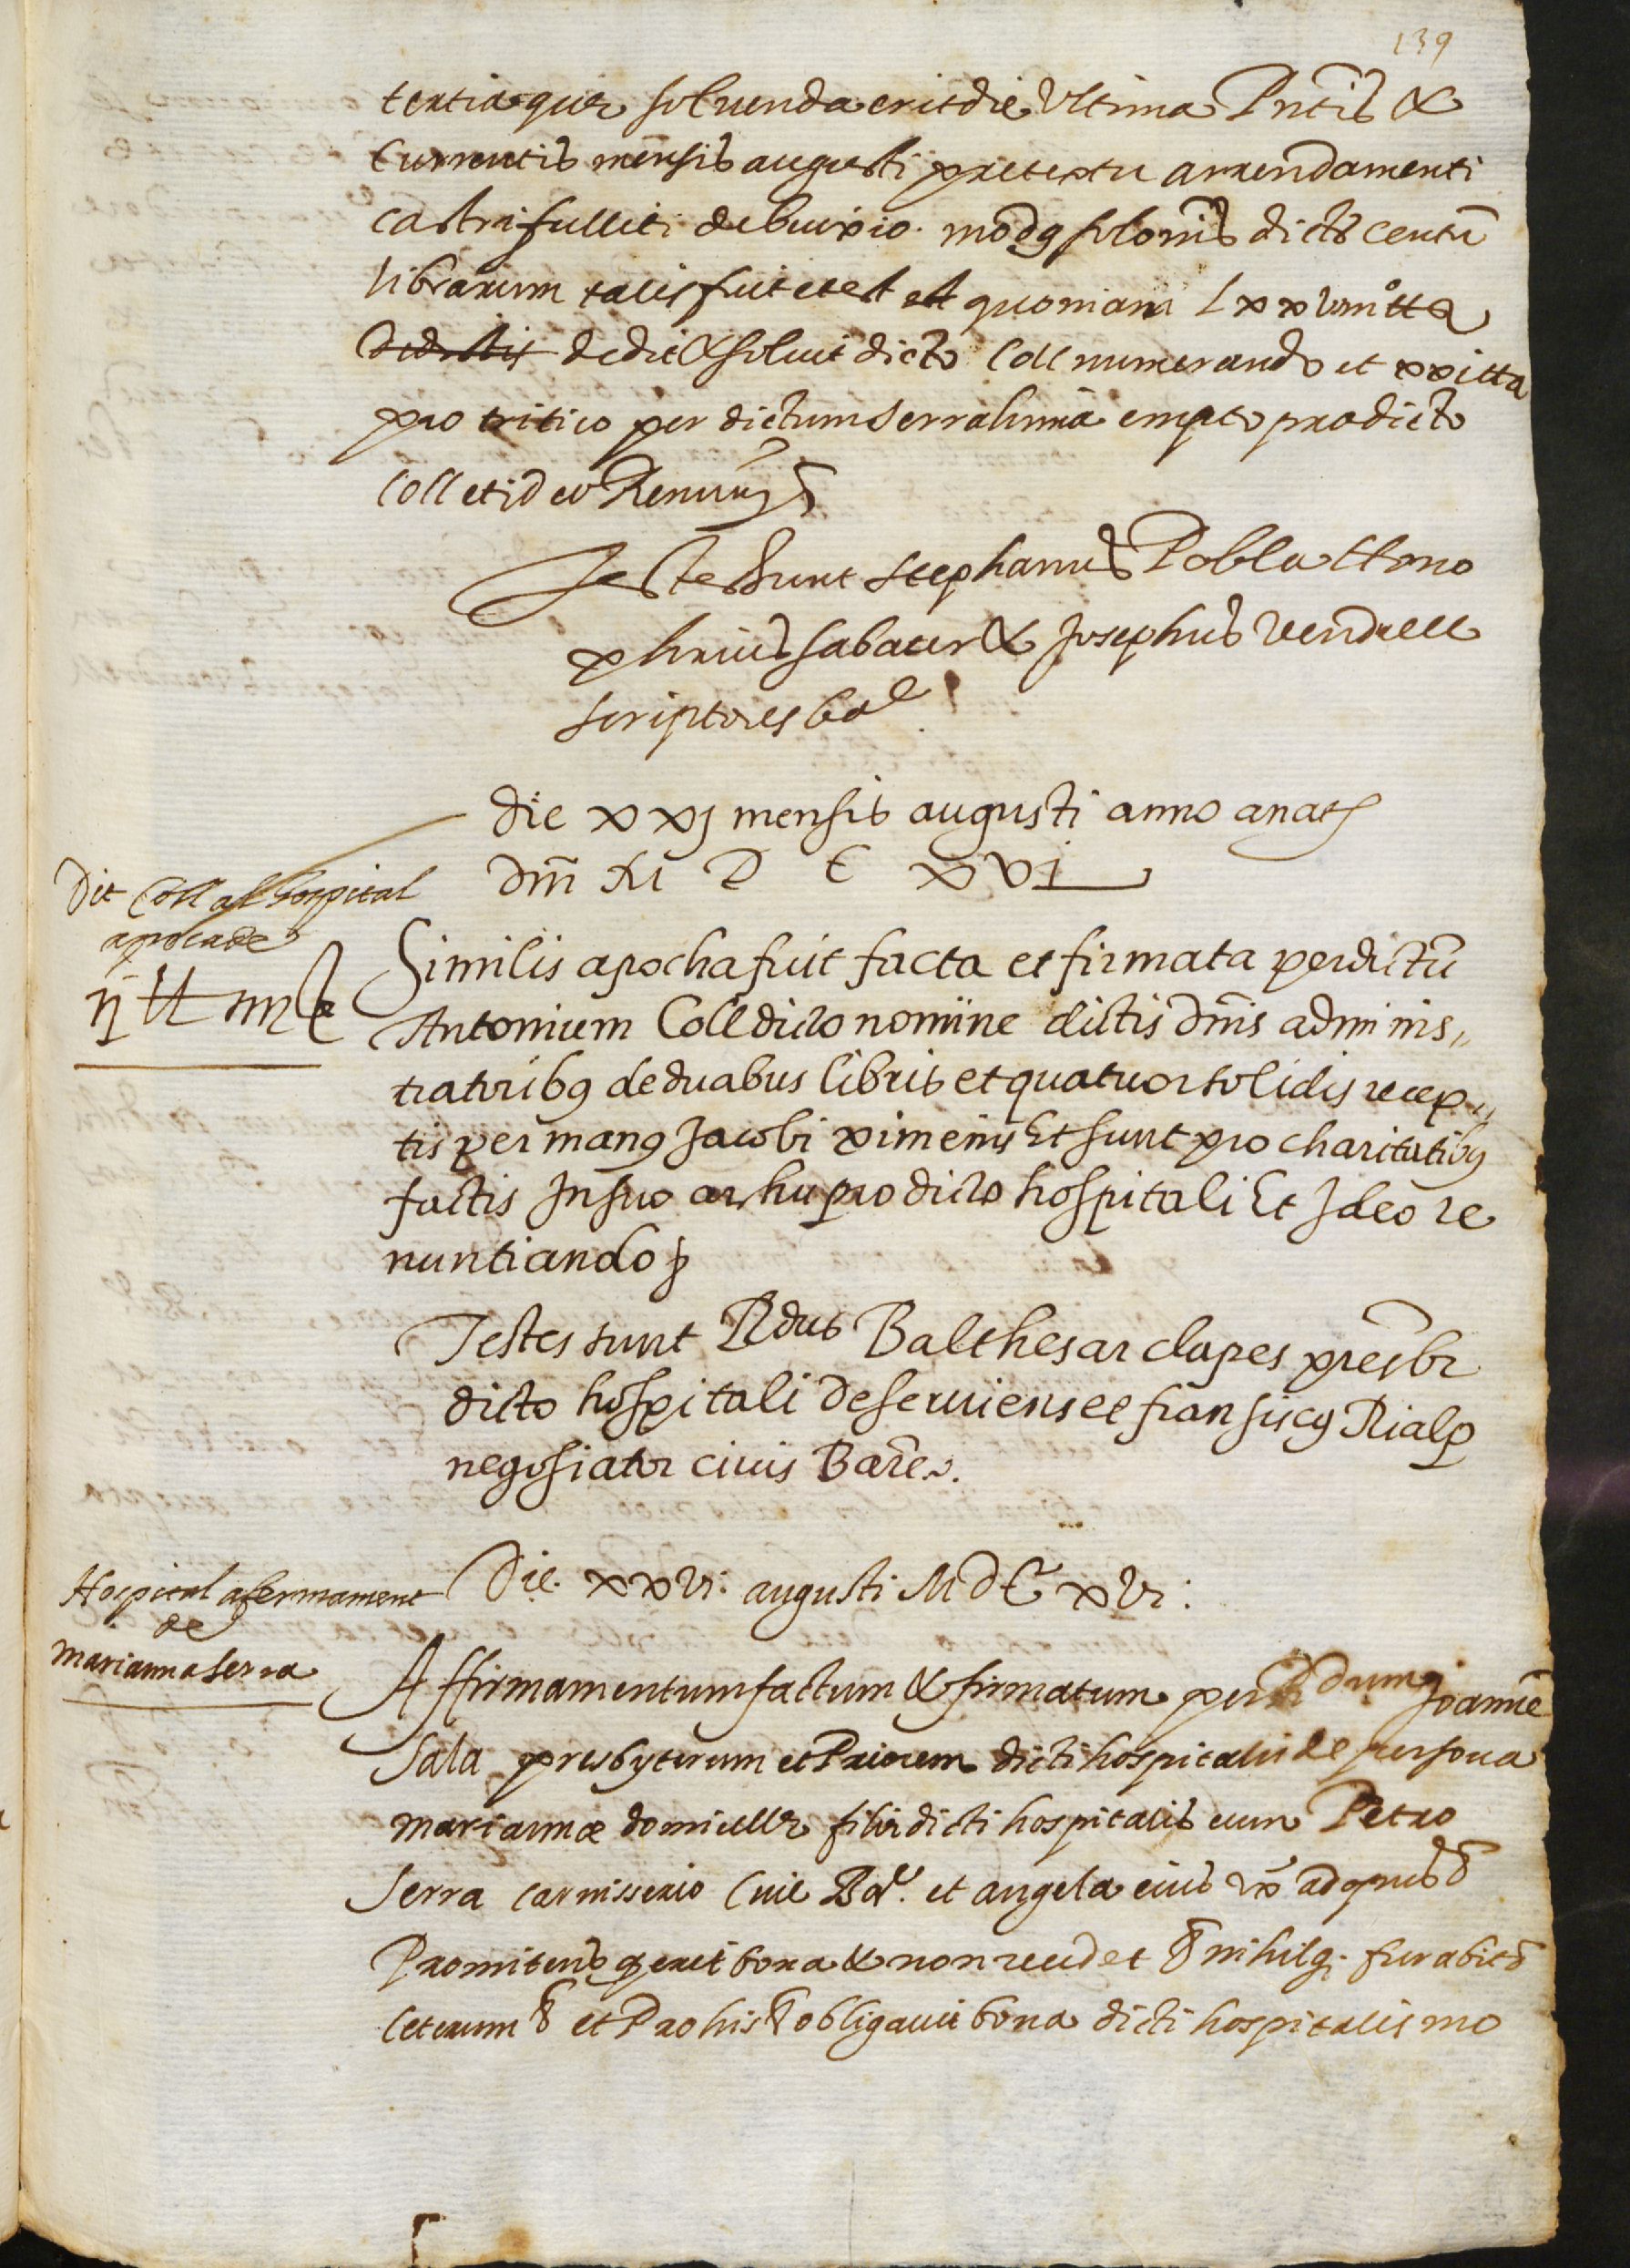 139
tertia que soluenda erit die Vltima Pntis &
Currentis mensis augusti pretextu arrendamenti
castri fulliti de buixio. modq solonis dictr centu
librarum talis fuit et est est quoniam Lxxvmtta
Dedistis dedit & soluit dicto Coll numerando et xxitta
pro tritico per dictum serrahima empto pro dicto
Coll et id eo Renun &
Testes sunt Stephanus Pobla Hono
phrius sabater & Josephus Vendrell
scriptores Bar
die xxj mensis augusti anno anat
Dni M D C XVI
Dit Coll al hospital
apoca de
ij tt iiij s
Similis apocha fuit facta et firmata per dictu
Antonium Coll dicto nomine dictis dnis adminis,,
tratoribq de duabus libris et quatuor solidis recep,,
tis per manq Jacobi ximenis Et sunt pro charitatibq
factis In suo arhu pro dicto hospitali Et Ideo re
nuntiando &
Testes sunt Rdus Balthesar clapes presbr
dicto hospitali deseruiens et fransiscq Rialp
negosiator ciuis Barc.
Hospital afermament
de
marianna serra
Die. xxvi: augusti MDC xvi:
Affirmamentum factum & firmatum per Rdum Joanne
Sala presbyterum et Priorem dicti hospitalis de persona
mariannæ domicelle filie dicti hospitalis cum Petro
Serra carnisserio Ciue Bar. et angela eius vx ad opus &
Promitens q erit bona & non recedet & nihilq. furabit
Ceterum & et Pro his & obligauit bona dicti hospitalis mo